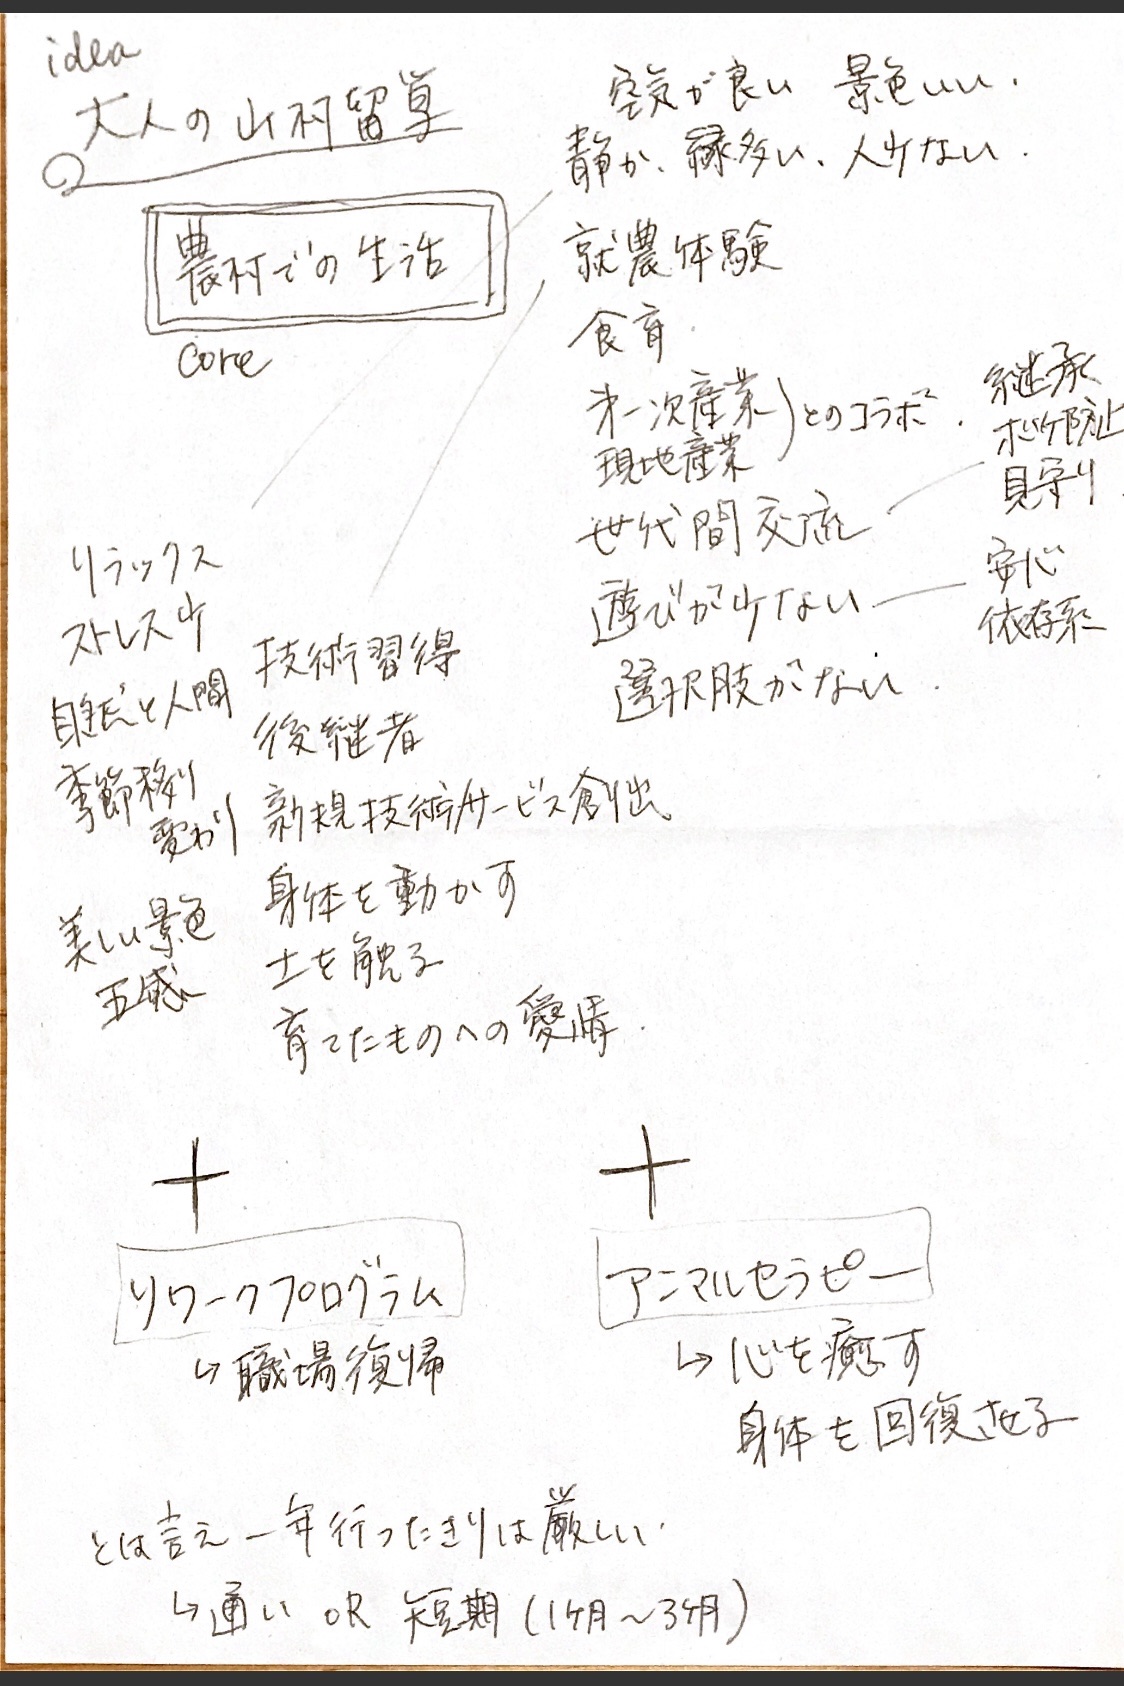 idea
大人の山村留学
農村での生活
core
空気が良い 景色いい.
静か、緑多い、人少ない.
就農体験
食育.
第一次産業
現地産業
とのコラボ.
世代間交流
継承
ボケ防止
見守り
遊びが少ない
安心
依存系
選択肢がない.
リラックス
ストレス少
自然と人間
季節移り
変わり
美しい景色
五感
技術習得
後継者
新規技術/サービス創出
身体を動かす
土を触る
育てたものへの愛情.
+
リワークプログラム
↳職場復帰
+
アニマルセラピー
↳心を癒す
身体を回復させる
とは言え一年行ったきりは厳しい.
↳通い OR 短期(1ヶ月〜3ヶ月)